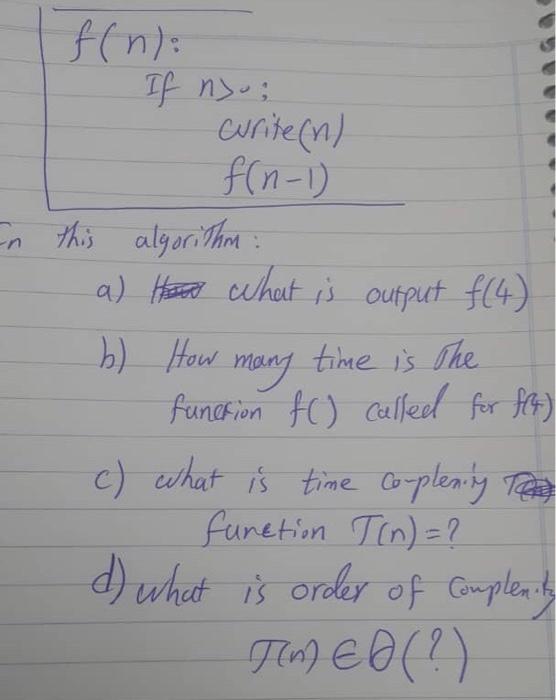 f(n):
If n>0:
write(n)
f(n-1)
In this algorithm:
a) what is output f(4)
b) How many time is the
function f() called for f(4)
c) what is time complexity
function T(n)=?
d) what is order of Complexity
T(n) ∈ θ(?)